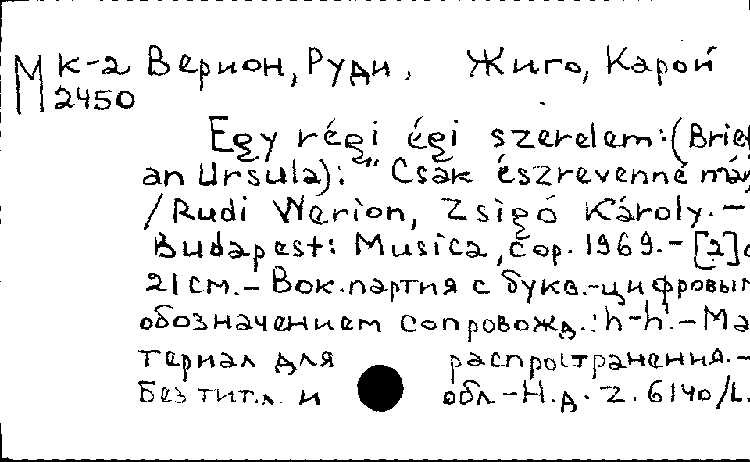 М к-2 Верион, Руди, Жиго, Карой
2450
Egy régi égi szerelem: (Brief
an Ursula): "Csak észrevenné má
/Rudi Werion, Zsigó Károly. –
Budapest: Musica, cop. 1969. – [2] c
21 см. – Вок. партия с букв.-цифровым
обозначением сопровожд.: h-h'. – Ма
териал для распространения. –
Без тит. л. и обл – Н.д. Z. 6140/L.